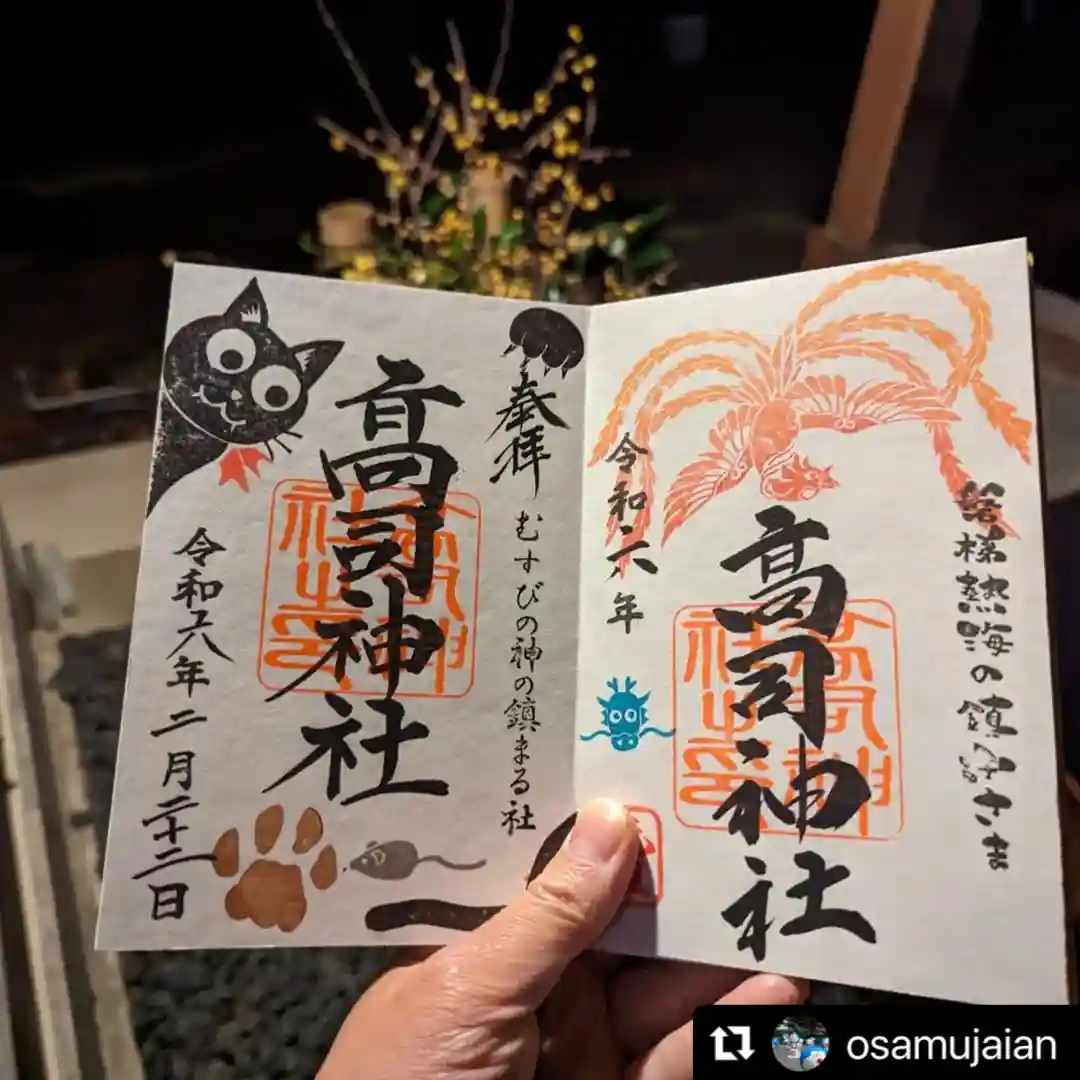 磐梯熱海の鎮守さま
高司神社
令和六年
奉拝
むすびの神の鎮まる社
高司神社
令和六年 二月二十二日
osamujaian